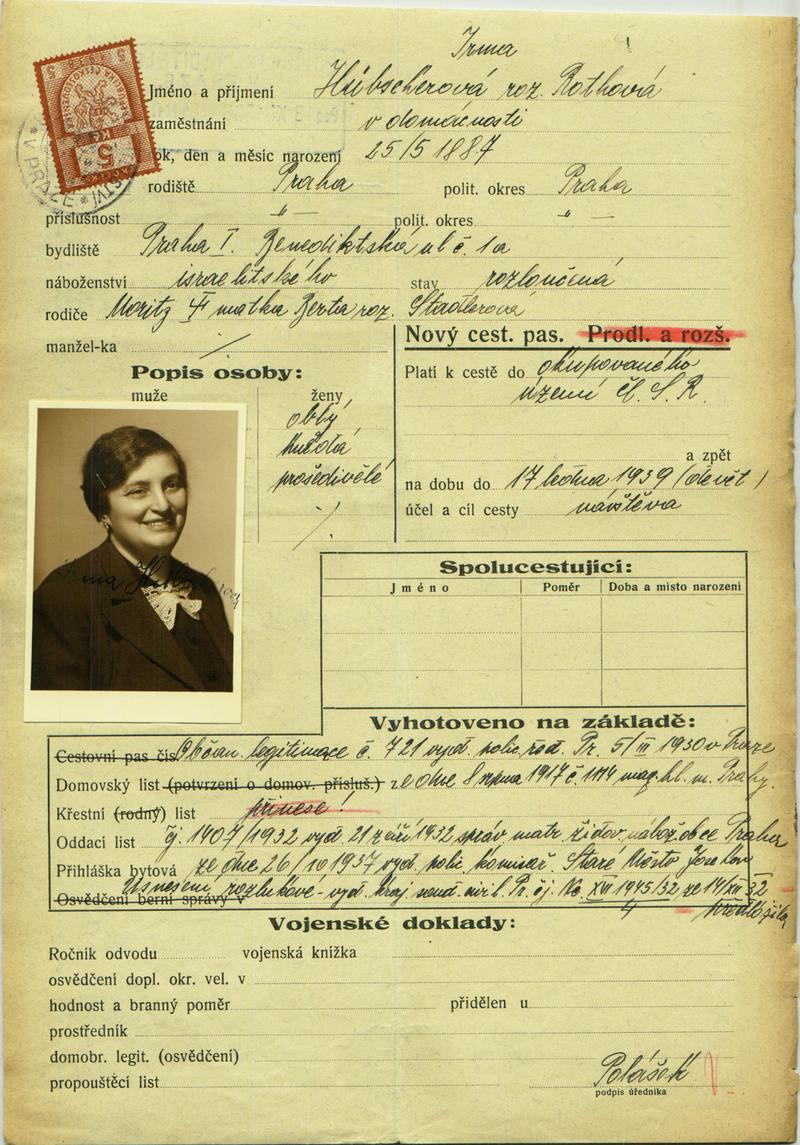 Irma
Jméno a příjmení Hübscherová roz. Rothová
zaměstnání v domácnosti
rok, den a měsíc narození 25/5 1887
rodiště Praha polit. okres Praha
příslušnost " — polit. okres " —
bydliště Praha I. Benediktská ul č. 1a
náboženství israelitského stav rozloučená
rodiče Moritz † matka Berta roz. Stadlerová
manžel-ka /
Nový cest. pas. Prodl. a rozš.
Platí k cestě do okupovaného
území Č. S. R.
a zpět
na dobu do 17 ledna 1939 (devět)
účel a cíl cesty návštěva
Popis osoby:
muže ženy
oblý
hnědá
prošedivělé
/
Spolucestující:
Jméno Poměr Doba a misto narození
Vyhotoveno na základě:
Cestovní pas čís Občan. legitimace č. 721 vyd. polic. řed. Pr. 5/III 1930 v Praze
Domovský list (potvrzení o domov. přísluš.) ze dne 8 srpna 1917 č 1114 mag. hl. m. Prahy.
Křestní (rodný) list přinese!
Oddací list čj. 1407/1932 vyd. 21 září 1932 správ. matr. židov. nábož. obce Praha
Přihláška bytová ze dne 26/10 1937 vyd. polic. komisař. Staré Město Josefov
Osvědčení berní správy v Usnesení rozlukové - vyd. kraj. soud. civil. Pr. čj. Nc XVII 1945/32 ze 14/XII 32
4 předložila
Vojenské doklady:
Ročník odvodu vojenská knížka
osvědčení dopl. okr. vel. v
hodnost a branný poměr přidělen u
prostředník
domobr. legit. (osvědčení)
propouštěcí list
Polášek
podpis úředníka